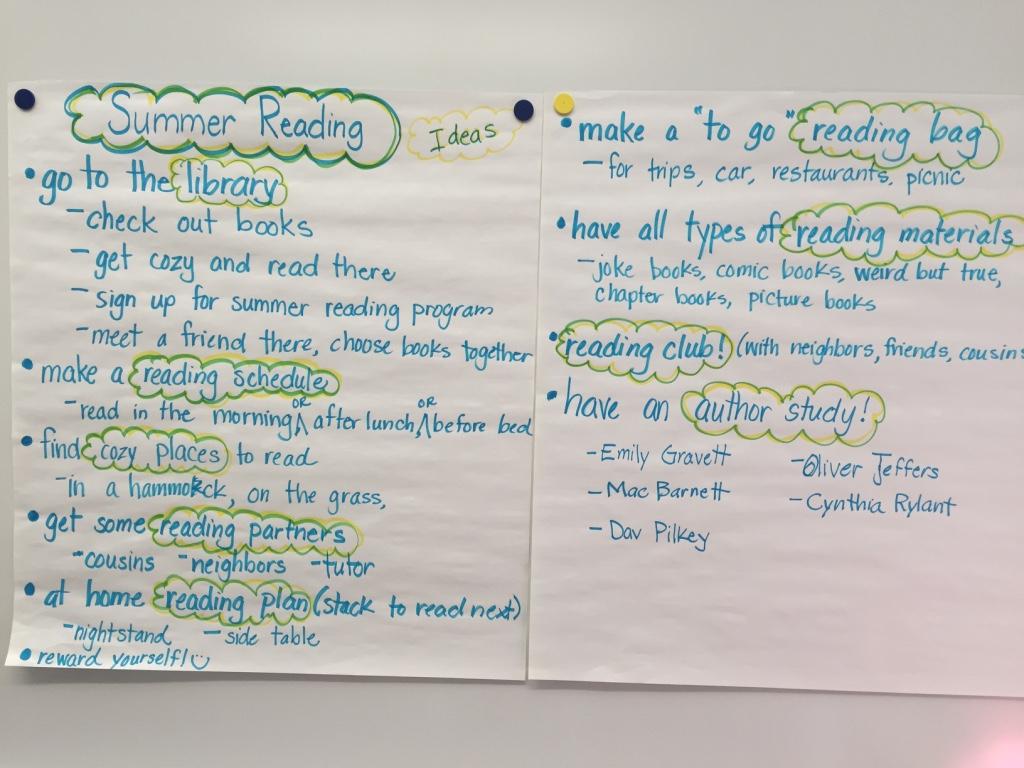 Summer Reading Ideas
• go to the library
- check out books
- get cozy and read there
- sign up for summer reading program
- meet a friend there, choose books together
• make a reading schedule
- read in the morning OR after lunch, OR before bed
• find cozy places to read
- in a hammock, on the grass,
• get some reading partners
- cousins - neighbors - tutor
• at home reading plan (stack to read next)
- nightstand - side table
• reward yourself! ☺
• make a "to go" reading bag
- for trips, car, restaurants, picnic
• have all types of reading materials
- joke books, comic books, weird but true,
chapter books, picture books
• reading club! (with neighbors, friends, cousins
• have an author study!
- Emily Gravett - Oliver Jeffers
- Mac Barnett - Cynthia Rylant
- Dav Pilkey